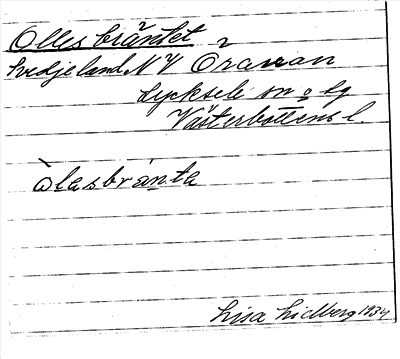 Olles bräntet
Svedjeland NV Öravan
Lycksele sn o lg
Västerbottens l.
òlasbrànta
Lisa Lidberg 1934